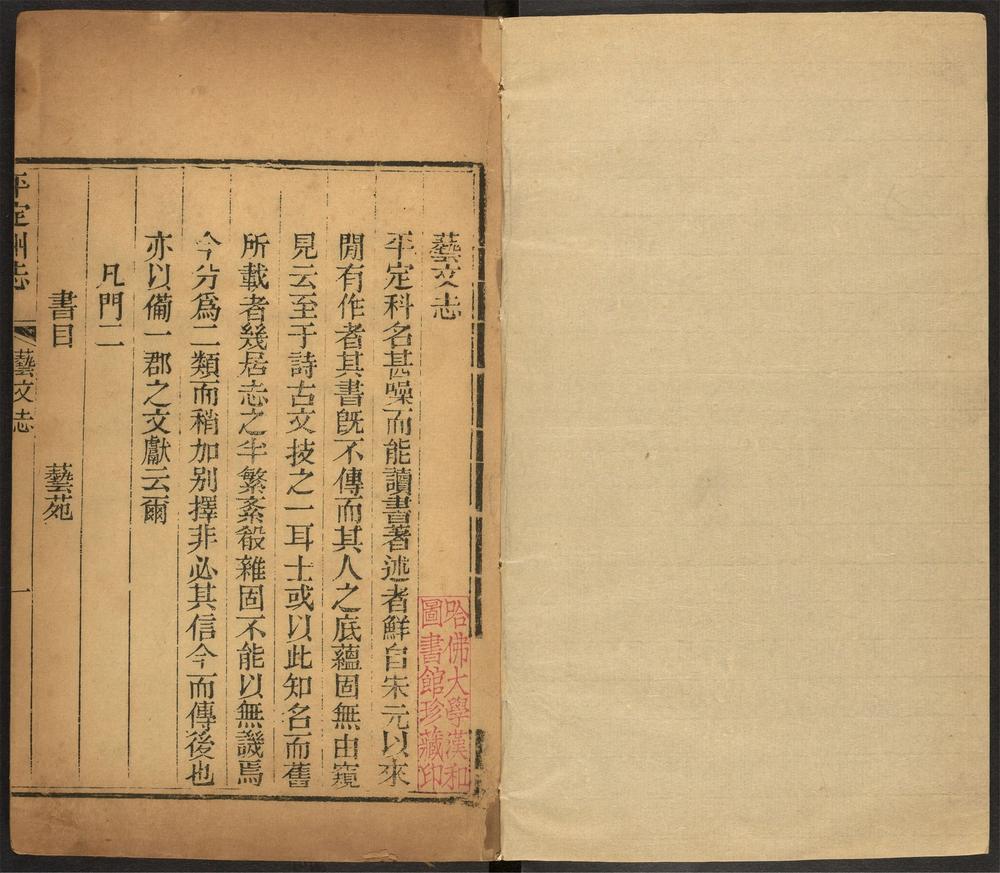 藝文志
平定科名甚噪而能讀書著述者鮮自宋元以來
閒有作者其書旣不傳而其人之底蘊固無由窺
見云至于詩古文技之一耳士或以此知名而舊
所載者幾居志之半繁紊殽雜固不能以無譏焉
今分爲二類而稍加别擇非必其信今而傳後也
亦以備一郡之文獻云爾
凡門二
書目 藝苑
平定州志 藝文志 一
哈佛大學漢和
圖書館珍藏印